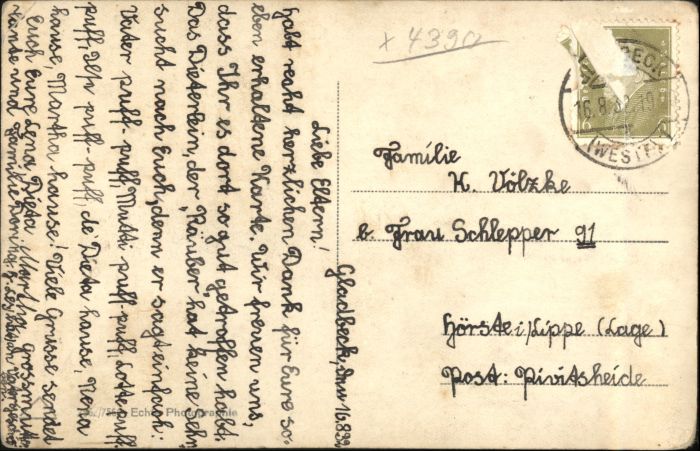 Gladbeck, den 16.8.32
Liebe Eltern!
habt recht herzlichen Dank für Eure so-
eben erhaltene Karte. Wir freuen uns,
dass Ihr es dort so gut getroffen habt.
Das Dieterlein, der "Räuber", hat keine Sehn-
sucht nach Euch, denn er sagt einfach:
Vater puff-puff, Mutti puff-puff, Lotte puff-
puff, Ilse puff-puff, de' Dieta hause, Nena
hause, Martha hause! Viele Grüsse sendet
Euch Eure Lena, Dieta, Martha, grossmutter,
Tante und Familie
x 4390
GLADBECK
16.8.32.19
(WESTF)
Familie
K. Völzke
b. Frau Schlepper 91
Hörste i/Lippe (Lage)
Post: Pivitsheide
Echte Photographie